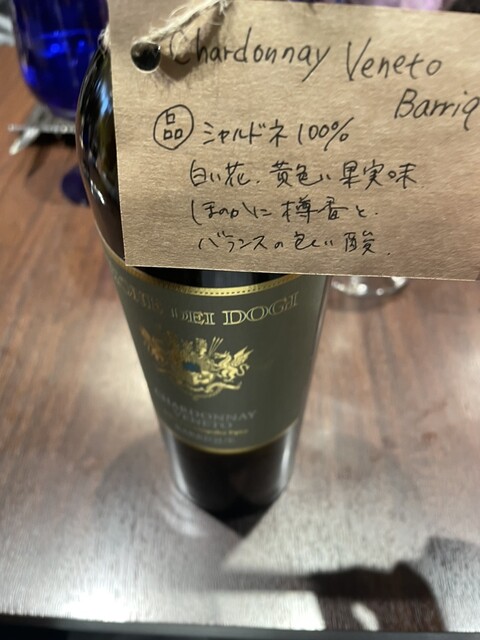 Chardonnay Veneto
Barriq
品 シャルドネ100%
白い花、黄色い果実味
ほのかに樽香と、
バランスの良い酸。
DEI DOGI
CHARDONNAY
VENETO